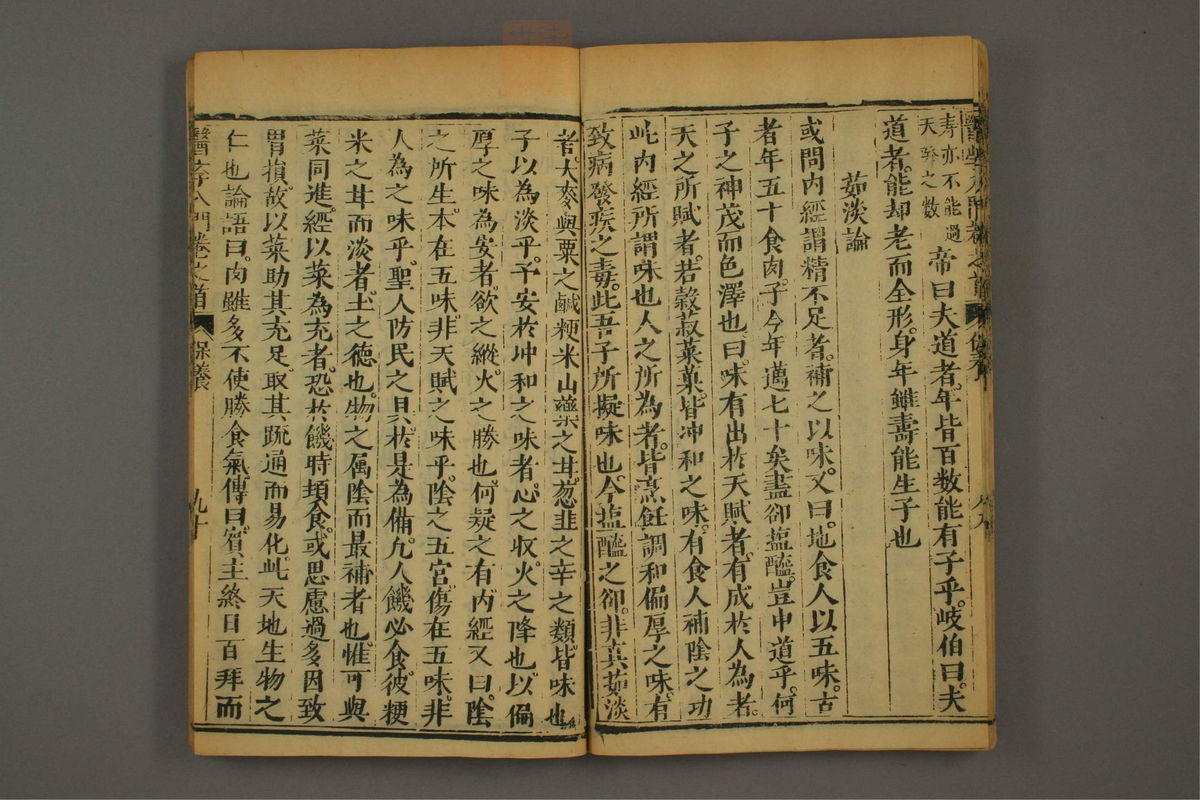 壽亦不能過
天癸之數
帝曰夫道者。年皆百数能有子乎。岐伯曰。夫
道者。能却老而全形。身年雖壽能生子也
茹淡論
或問内經謂精不足者。補之以味。又曰。地食人以五味。古
者年五十食肉。子今年邁七十矣盡卻塩醯。豈中道乎。何
子之神茂而色澤也。曰。味有出於天賦者。有成於人為者。
天之所賦者。若穀菽菜菓。皆冲和之味。有食人補陰之功
此内經所謂味也人之所為者。皆烹飪調和偏厚之味。有
致病發疾之毒。此吾子所擬味也。今塩醯之卻。非真茹淡
者。大麥與粟之鹹粳米山藥之甘。葱韭之辛之類。皆味也
子以為淡乎。予安於冲和之味者。心之収。火之降也以偏
厚之味為安者。欲之縱。火之勝也。何疑之有。内經又曰。陰
之所生。本在五味。非天賦之味乎。陰之五官。傷在五味。非
人為之味乎。聖人防民之具。於是為備。凣人饑必食。彼粳
米之甘而淡者。土之德也。物之属陰而最補者也。惟可與
菜同進。經以菜為充者。恐於饑時頓食。或思慮過多因致
胃損。故以菜助其充足。取其疏通而易化。此天地生物之
仁也論語曰。肉雖多不使勝食氣傳曰。賓主終日百拜而
醫家八門卷之首
保養
九十